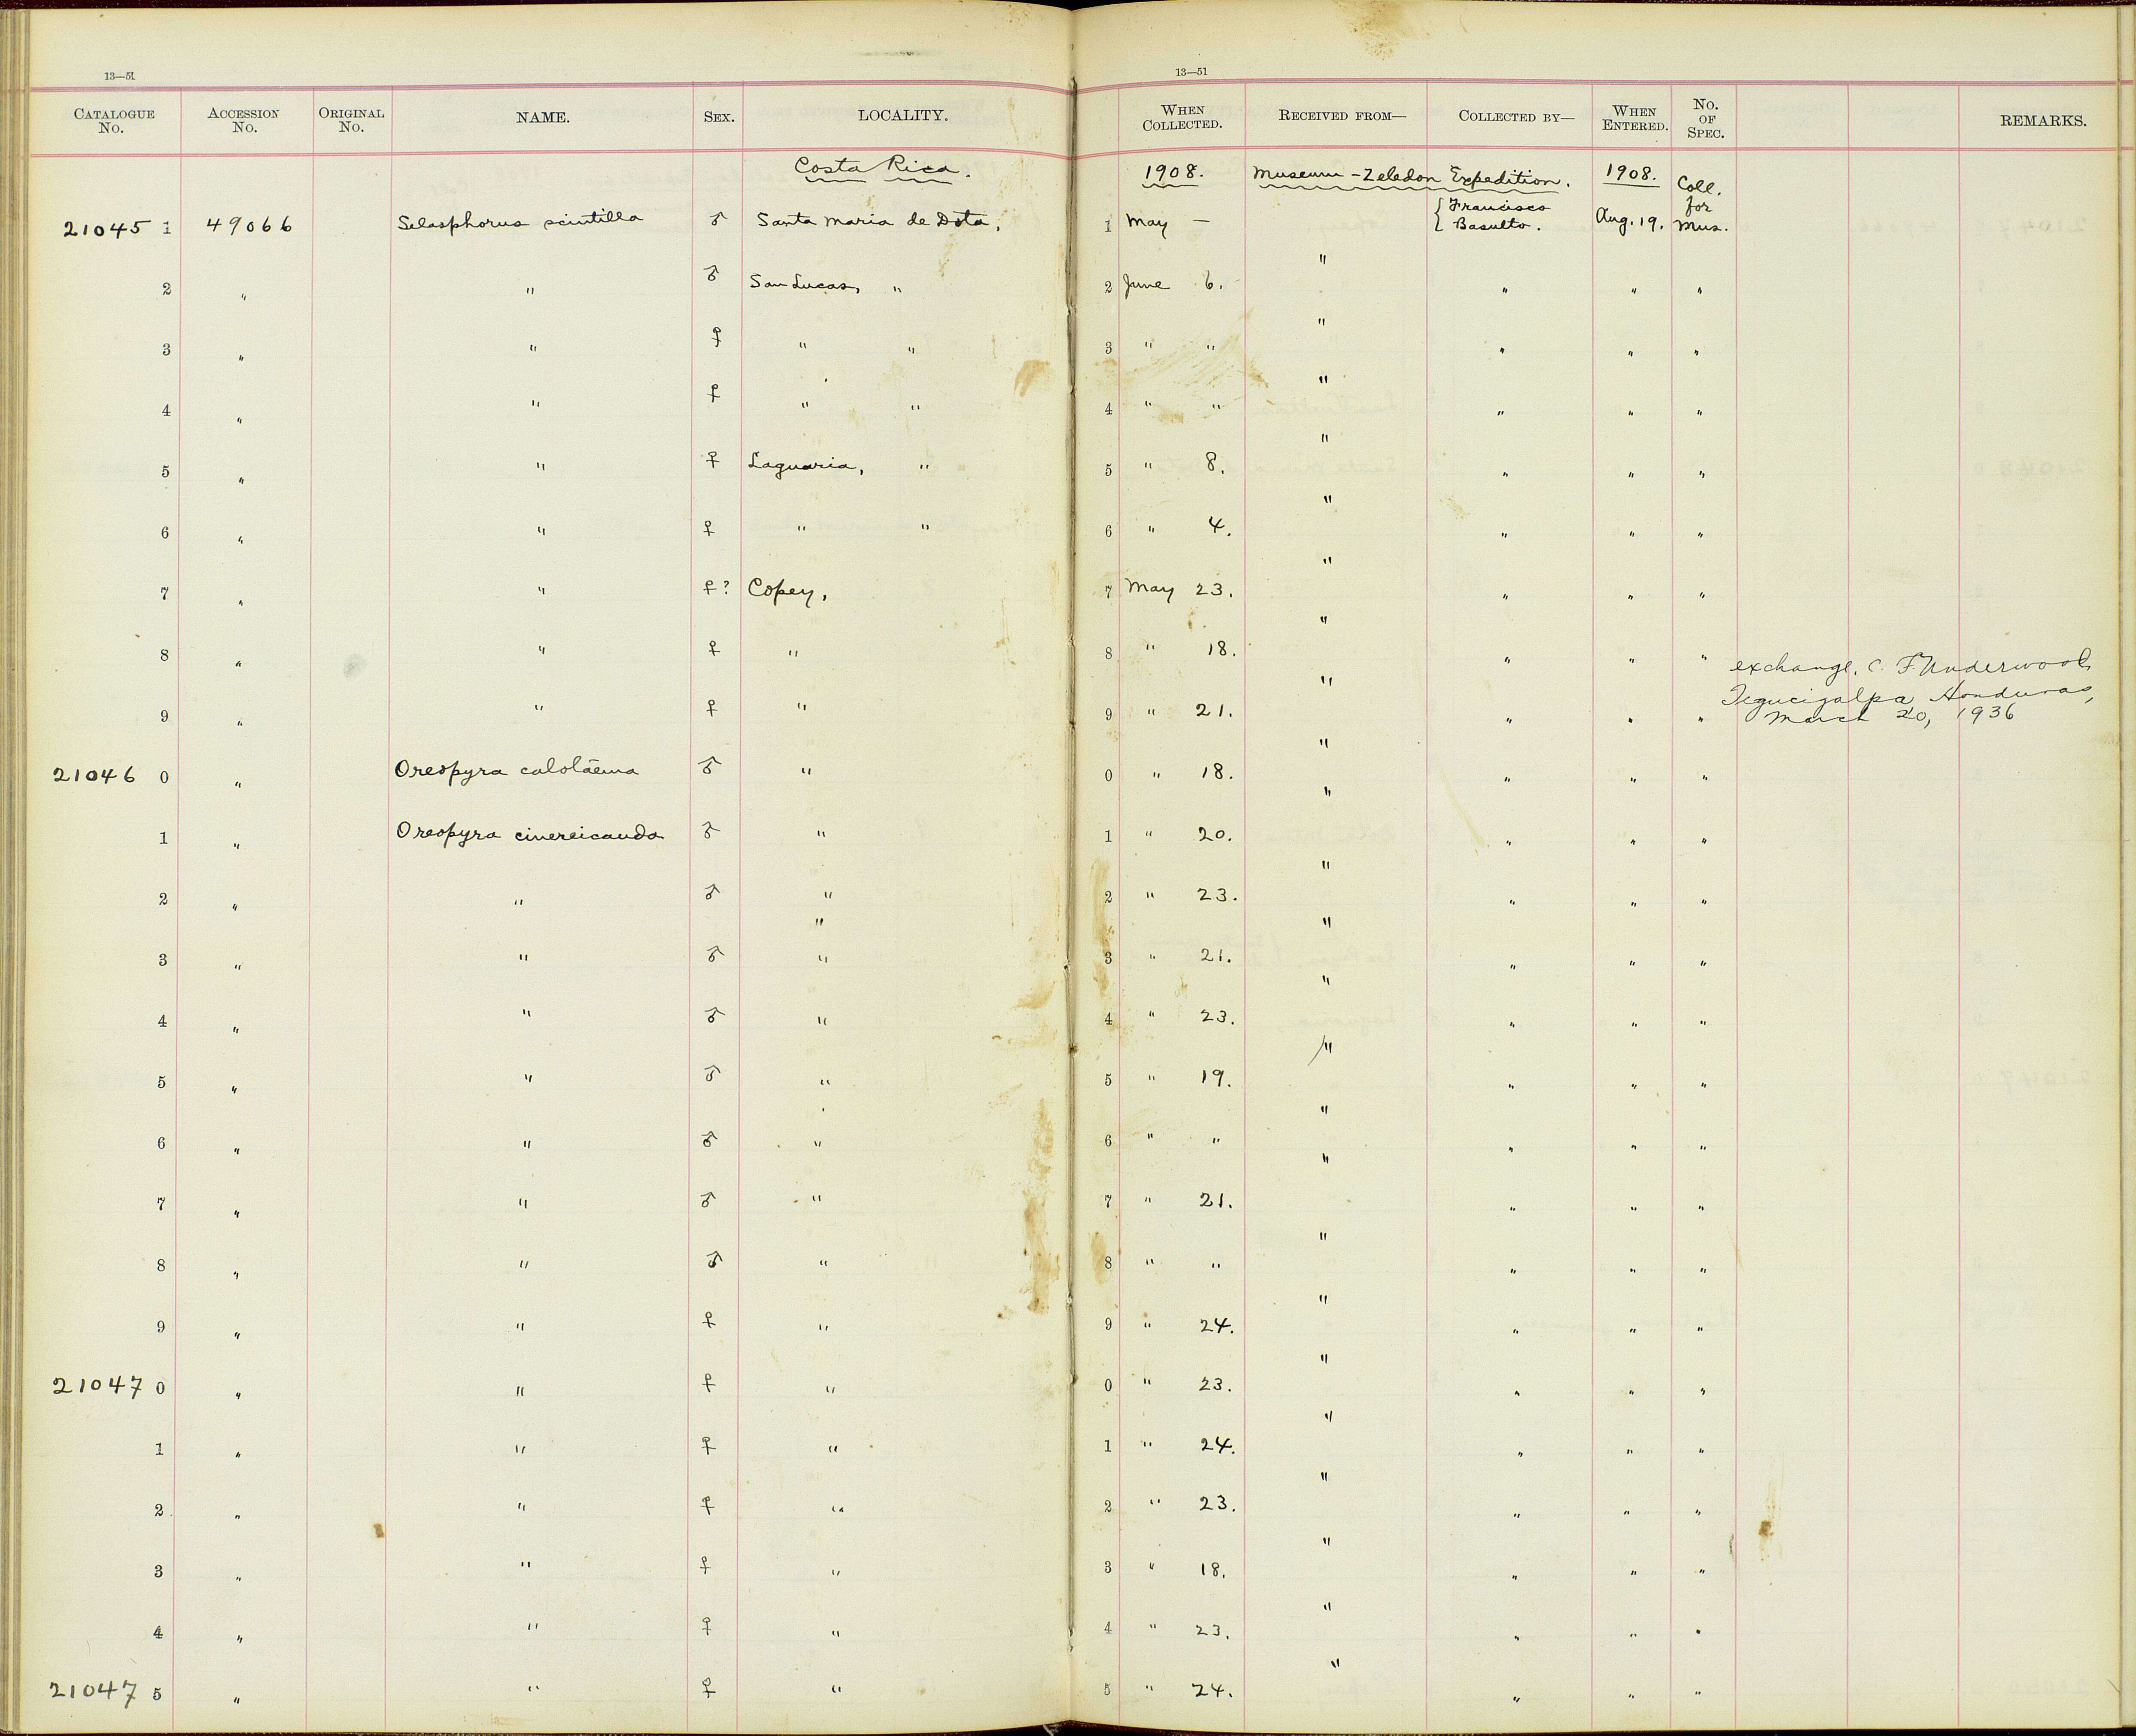 13—51
13—51
CATALOGUE No. ACCESSION No. ORIGINAL No. NAME. SEX. LOCALITY. WHEN COLLECTED. RECEIVED FROM— COLLECTED BY— WHEN ENTERED. No. OF SPEC. REMARKS.
Costa Rica. 1908. Museum-Zeledon Expedition. 1908. Coll. for Mus.
21045 1 49066 Selasphorus scintilla ♂ Santa Maria de Dota, 1 May — { Francisco Basulto. Aug. 19.
2 " " ♂ San Lucas, " 2 June 6. " " " "
3 " " ♀ " " 3 " " " " " "
4 " " ♀ " " 4 " " " " " "
5 " " ♀ Laguaria, " 5 " 8. " " " "
6 " " ♀ " " 6 " 4. " " " "
7 " " ♀? Copey, 7 May 23. " " " "
8 " " ♀ " 8 " 18. " " " " exchange, C. F. Underwood,
Tegucigalpa Honduras,
9 " " ♀ " 9 " 21. " " " " March 20, 1936
21046 0 " Oreopyra calolaema ♂ " 0 " 18. " " " "
1 " Oreopyra cinereicauda ♂ " 1 " 20. " " " "
2 " " ♂ " 2 " 23. " " " "
3 " " ♂ " 3 " 21. " " " "
4 " " ♂ " 4 " 23. " " " "
5 " " ♂ " 5 " 19. " " " "
6 " " ♂ " 6 " " " " " "
7 " " ♂ " 7 " 21. " " " "
8 " " ♂ " 8 " " " " " "
9 " " ♀ " 9 " 24. " " " "
21047 0 " " ♀ " 0 " 23. " " " "
1 " " ♀ " 1 " 24. " " " "
2 " " ♀ " 2 " 23. " " " "
3 " " ♀ " 3 " 18. " " " "
4 " " ♀ " 4 " 23. " " " "
21047 5 " " ♀ " 5 " 24. " " " "